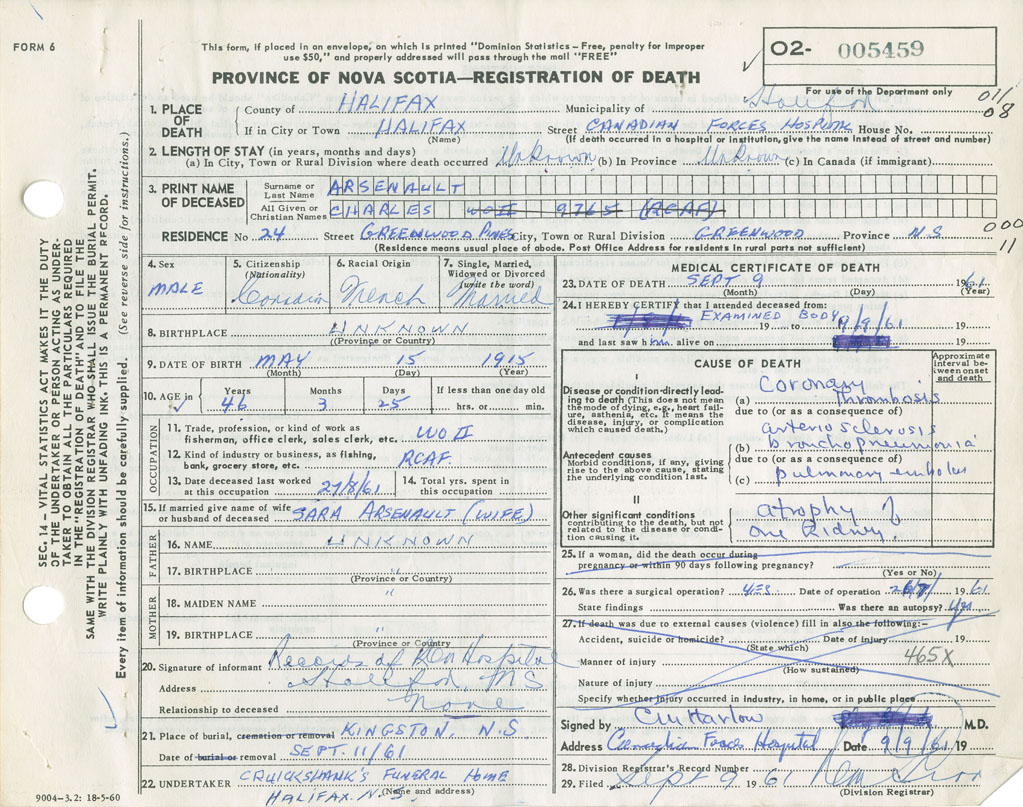 FORM 6
This form, if placed in an envelope, on which is printed "Dominion Statistics – Free, penalty for improper
use $50," and properly addressed will pass through the mail "FREE"
PROVINCE OF NOVA SCOTIA—REGISTRATION OF DEATH
O2- 005459
For use of the Department only
01/8
08
1. PLACE OF DEATH
County of HALIFAX Municipality of Halifax
If in City or Town HALIFAX Street CANADIAN FORCES HOSPITAL House No.
(Name) (If death occurred in a hospital or institution, give the name instead of street and number)
2. LENGTH OF STAY (in years, months and days)
(a) In City, Town or Rural Division where death occurred Unknown (b) In Province Unknown (c) In Canada (if immigrant)
3. PRINT NAME OF DECEASED
Surname or Last Name ARSENAULT
All Given or Christian Names CHARLES WO II 9765 (RCAF)
RESIDENCE No. 24 Street GREENWOOD PINES City, Town or Rural Division GREENWOOD Province N.S.
(Residence means usual place of abode. Post Office Address for residents in rural parts not sufficient)
000
11
4. Sex MALE
5. Citizenship (Nationality) Canadian
6. Racial Origin French
7. Single, Married, Widowed or Divorced (write the word) Married
8. BIRTHPLACE UNKNOWN
(Province or Country)
9. DATE OF BIRTH MAY 15 1915
(Month) (Day) (Year)
10. AGE in Years 46 Months 3 Days 25 If less than one day old hrs. or min.
OCCUPATION
11. Trade, profession, or kind of work as fisherman, office clerk, sales clerk, etc. WO II
12. Kind of industry or business, as fishing, bank, grocery store, etc. RCAF.
13. Date deceased last worked at this occupation 27/8/61
14. Total yrs. spent in this occupation
15. If married give name of wife or husband of deceased SARA ARSENAULT (WIFE)
FATHER
16. NAME UNKNOWN
17. BIRTHPLACE "
(Province or Country)
MOTHER
18. MAIDEN NAME "
19. BIRTHPLACE "
(Province or Country)
20. Signature of informant Records of Hospital
Address Halifax,
Relationship to deceased None
21. Place of burial, cremation or removal KINGSTON, N.S
Date of burial or removal SEPT. 11/61
22. UNDERTAKER CRUICKSHANK'S FUNERAL HOME
HALIFAX. N.S. (Name and address)
MEDICAL CERTIFICATE OF DEATH
23. DATE OF DEATH SEPT 9 1961
(Month) (Day) (Year)
24. I HEREBY CERTIFY that I attended deceased from:
EXAMINED BODY 19 to 9/9/61 19
and last saw h alive on 19
CAUSE OF DEATH
Approximate interval between onset and death
I
Disease or condition directly leading to death (This does not mean the mode of dying, e.g., heart failure, asthenia, etc. It means the disease, injury, or complication which caused death.)
(a) Coronary thrombosis
due to (or as a consequence of)
arteriosclerosis
Antecedent causes
Morbid conditions, if any, giving rise to the above cause, stating the underlying condition last.
(b) bronchopneumonia
due to (or as a consequence of)
(c) pulmonary embolus
II
Other significant conditions
contributing to the death, but not related to the disease or condition causing it.
atrophy of
one kidney.
25. If a woman, did the death occur during
pregnancy or within 90 days following pregnancy?
(Yes or No)
26. Was there a surgical operation? yes Date of operation 1961
State findings Was there an autopsy? yes
27. If death was due to external causes (violence) fill in also the following:-
Accident, suicide or homicide? Date of injury 19
(State which)
Manner of injury 465X
(How sustained)
Nature of injury
Specify whether injury occurred in industry, in home, or in public place
Signed by CM Harlow M.D.
Address Canadian Forces Hospital Date 9/9/61 19
28. Division Registrar's Record Number
29. Filed Sept 9 1961
(Division Registrar)
SEC. 14 – VITAL STATISTICS ACT MAKES IT THE DUTY
OF THE UNDERTAKER OR PERSON ACTING AS UNDER-
TAKER TO OBTAIN ALL THE PARTICULARS REQUIRED
IN THE "REGISTRATION OF DEATH" AND TO FILE THE
SAME WITH THE DIVISION REGISTRAR WHO SHALL ISSUE THE BURIAL PERMIT.
WRITE PLAINLY WITH UNFADING INK. THIS IS A PERMANENT RECORD.
Every item of information should be carefully supplied. (See reverse side for instructions.)
9004-3.2: 18-5-60